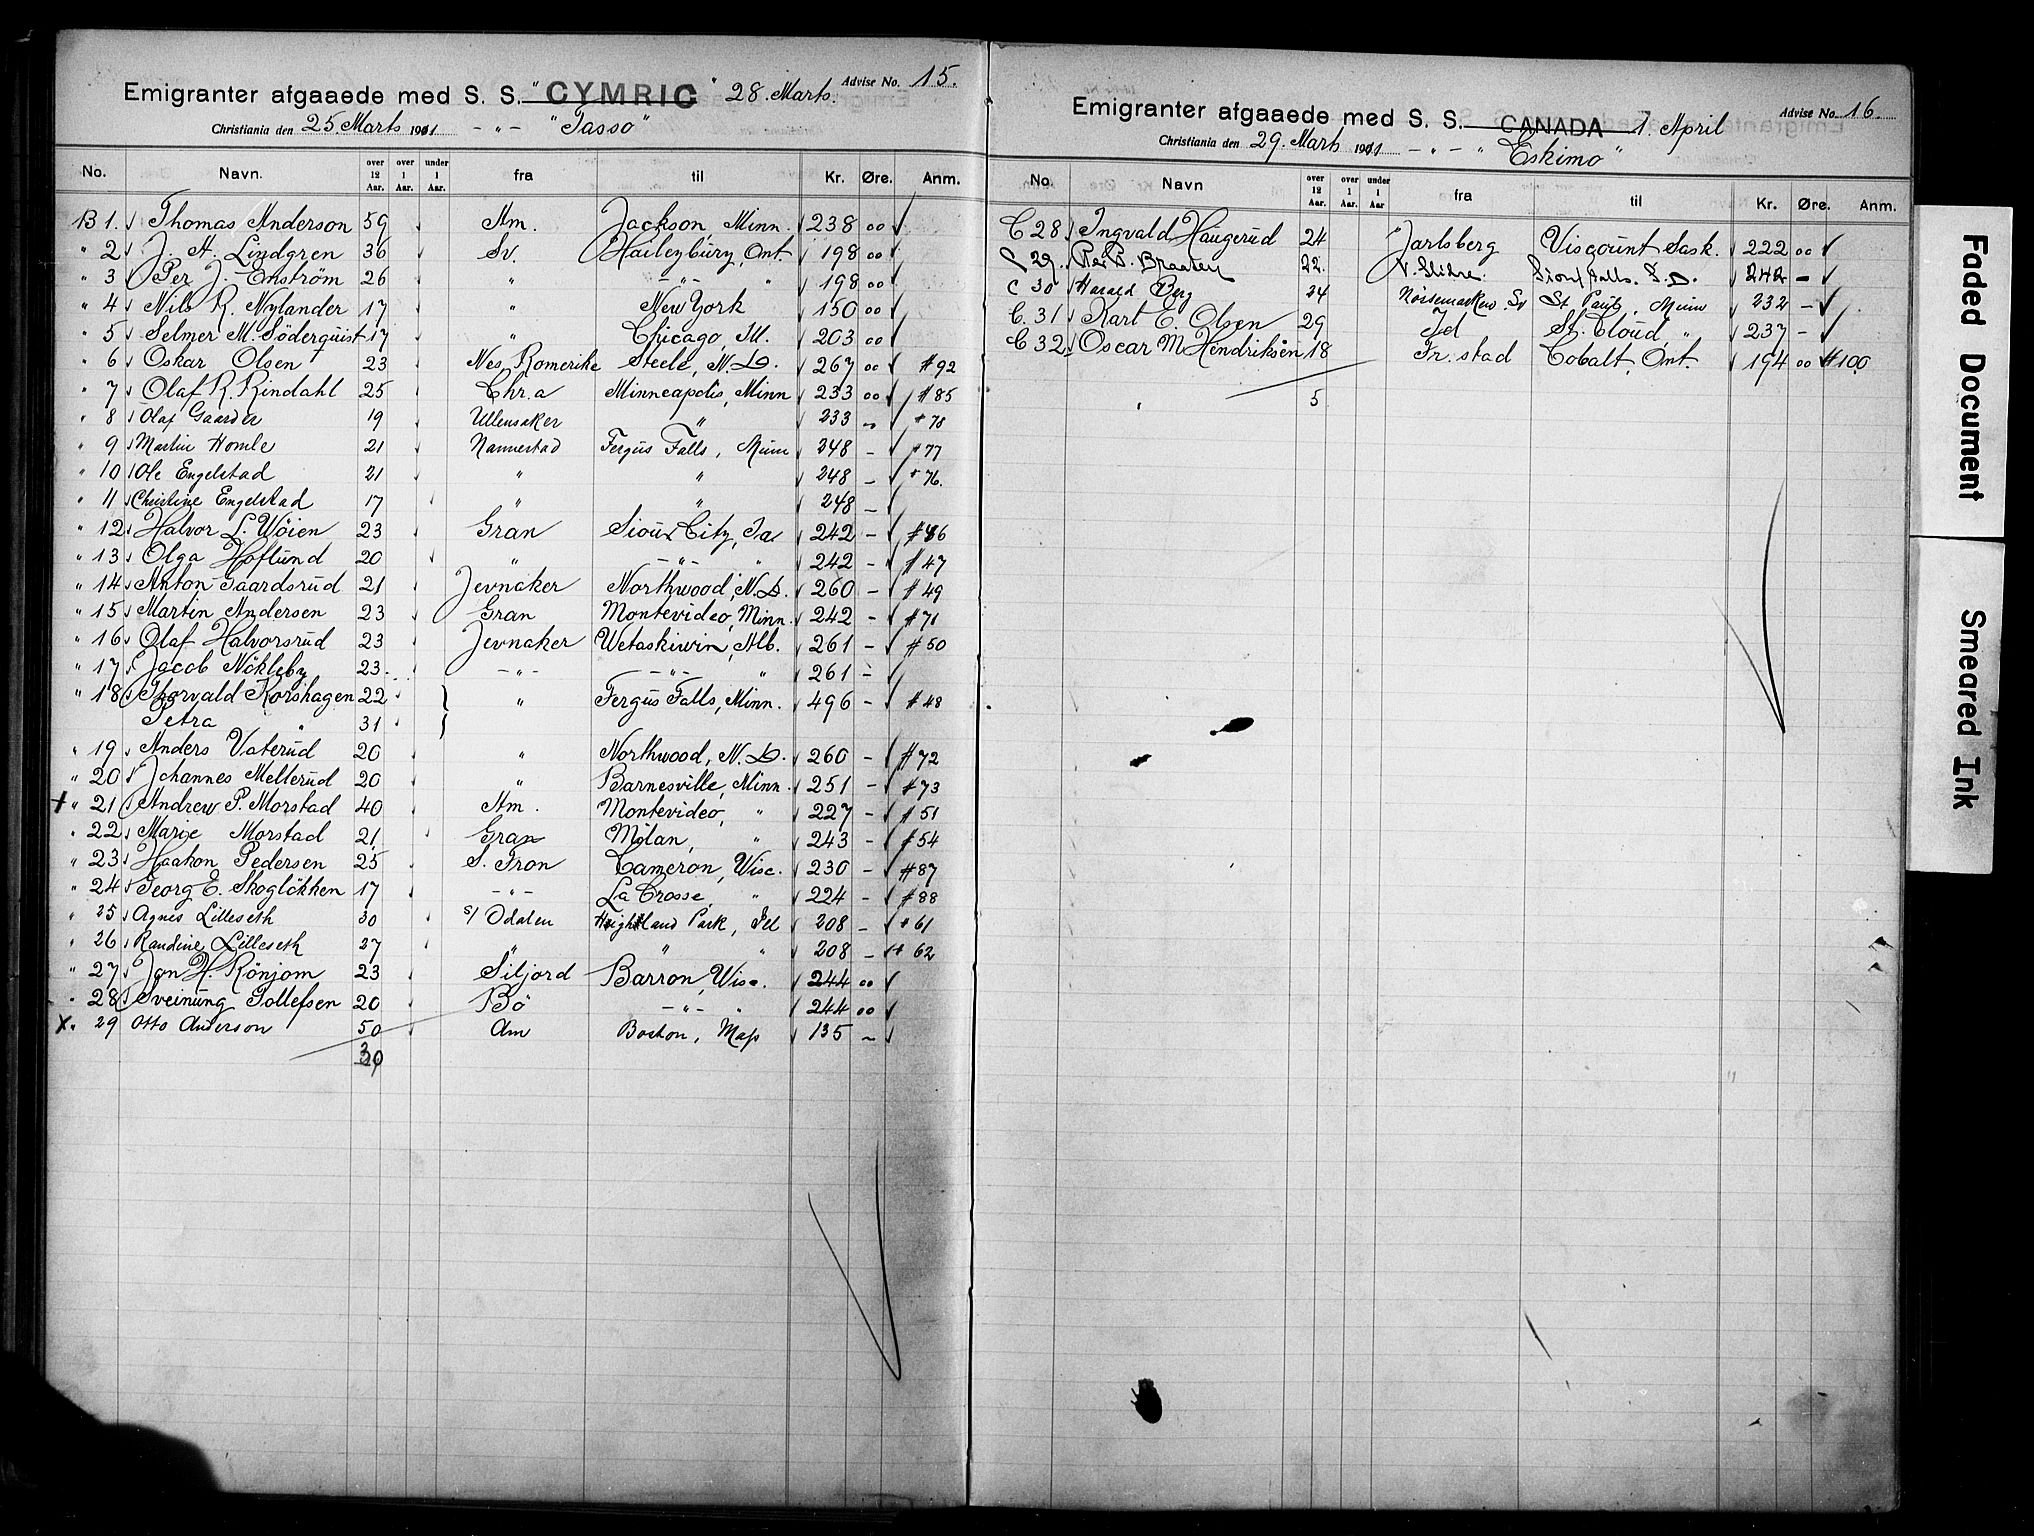 Advise No. 15.
Emigranter afgaaede med S. S. "CYMRIC" 28. Marts.
Christiania den 25. Marts 1911 - " - "Tasso"
No. Navn. over 12 Aar. over 1 Aar. under 1 Aar. fra til Kr. Øre. Anm.
B 1. Thomas Anderson 59 Am. Jackson, Minn. 238 00
" 2 J. A. Lindgren 36 Sv. Haileybury, Ont. 198 00
" 3 Per J. Enström 26 " - " - " 198 00
" 4 Nils R. Nylander 17 " New York 150 00
" 5 Selmer M. Söderquist 17 " Chicago, Ill. 203 00
" 6 Oskar Olsen 23 Nes, Romerike Steele, N.D. 267 00 #92
" 7 Olaf R. Rindahl 25 Chr.a Minneapolis, Minn 233 00 #85
" 8 Olaf Gaarder 19 Ullensaker " 233 - #78
" 9 Martin Homle 21 Nannestad Fergus Falls, Minn 248 - #77
" 10 Ole Engelstad 21 " " 248 - #76.
" 11 Christine Engelstad 17 " " 248 -
" 12 Halvor L. Wöien 23 Gran Sioux City, Ia 242 - #46
" 13 Olga Hoflund 20 " - " - " 242 - #47
" 14 Anton Gaardsrud 21 Jevnaker Northwood, N.D. 260 - #49
" 15 Martin Andersen 23 Gran Montevideo, Minn. 242 - #71
" 16 Olaf Halvorsrud 23 Jevnaker Wetaskiwin, Alb. 261 - #50
" 17 Jacob Nökleby 23 - " - - " - " 261 -
" 18 Thorvald Korshagen 22 } " Fergus Falls, Minn. 496 - #48
Petra " 31 }
" 19 Anders Vaterud 20 " Northwood, N.D. 260 - #72
" 20 Johannes Mellerud 20 " Barnesville, Minn. 251 - #73
+ " 21 Andrew P. Morstad 40 Am. Montevideo, " 227 - #51
" 22 Marie Morstad 21 Gran Milan, " 243 - #54
" 23 Haakon Pedersen 25 S. Fron Cameron, Wisc. 230 - #87
" 24 Georg E. Skoglökken 17 - " - La Crosse, " 224 - #88
" 25 Agnes Lilleseth 30 S/ Odalen Highland Park, Ill 208 - #61
" 26 Randine Lilleseth 27 " " " 208 - # 62
" 27 Jon H. Rönjom 23 Siljord Barron, Wisc. 244 00
" 28 Sveinung Tollefsen 20 Bö - " - " 244 00
X " 29 Otto Anderson 50 Am Boston, Mass 135 -
30
Advise No. 16.
Emigranter afgaaede med S. S. CANADA 1 April
Christiania den 29. Marts 1911 - " - "Eskimo"
No. Navn over 12 Aar. over 1 Aar. under 1 Aar fra til Kr. Øre. Anm.
C 28 Ingvald Haugerud 24 Jarlsberg Viscount Sask. 222 00
C 29. Per B. Braaten 22 V. Slidre. Sioux Falls. S.D. 242 -
C 30 Harald Berg 24 Nössemarken Sv St. Paul, Minn 232 -
C. 31 Karl E. Olsen 29 Id St. Cloud, " 237 -
C 32 Oscar M Hendriksen 18 Fr.stad Cobalt, Ont. 194 00 #100
5
Faded Document
Smeared Ink